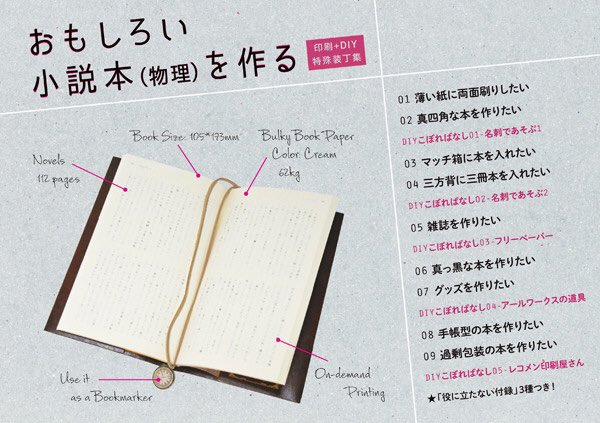 おもしろい
小説本(物理)を作る
印刷+DIY
特殊装丁集
Book Size: 105*173mm
Bulky Book Paper
Color: Cream
62kg
Novels
112 pages
Use it
as a Bookmarker
On-demand
Printing
01 薄い紙に両面刷りしたい
02 真四角な本を作りたい
DIYこぼればなし01-名刺であそぶ1
03 マッチ箱に本を入れたい
04 三方背に三冊本を入れたい
DIYこぼればなし02-名刺であそぶ2
05 雑誌を作りたい
DIYこぼればなし03-フリーペーパー
06 真っ黒な本を作りたい
07 グッズを作りたい
DIYこぼればなし04-アールワークスの道具
08 手帳型の本を作りたい
09 過剰包装の本を作りたい
DIYこぼればなし05-レコメン印刷屋さん
★「役に立たない付録」3種つき!